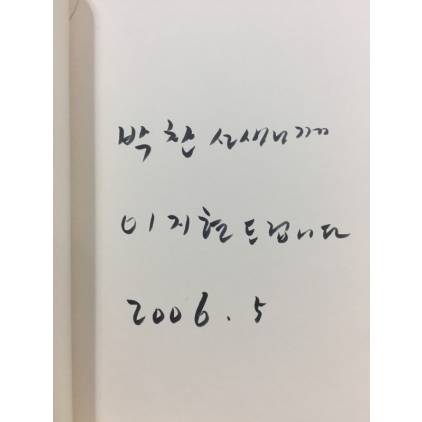 박찬 선생님께
이지현 드립니다
2006. 5